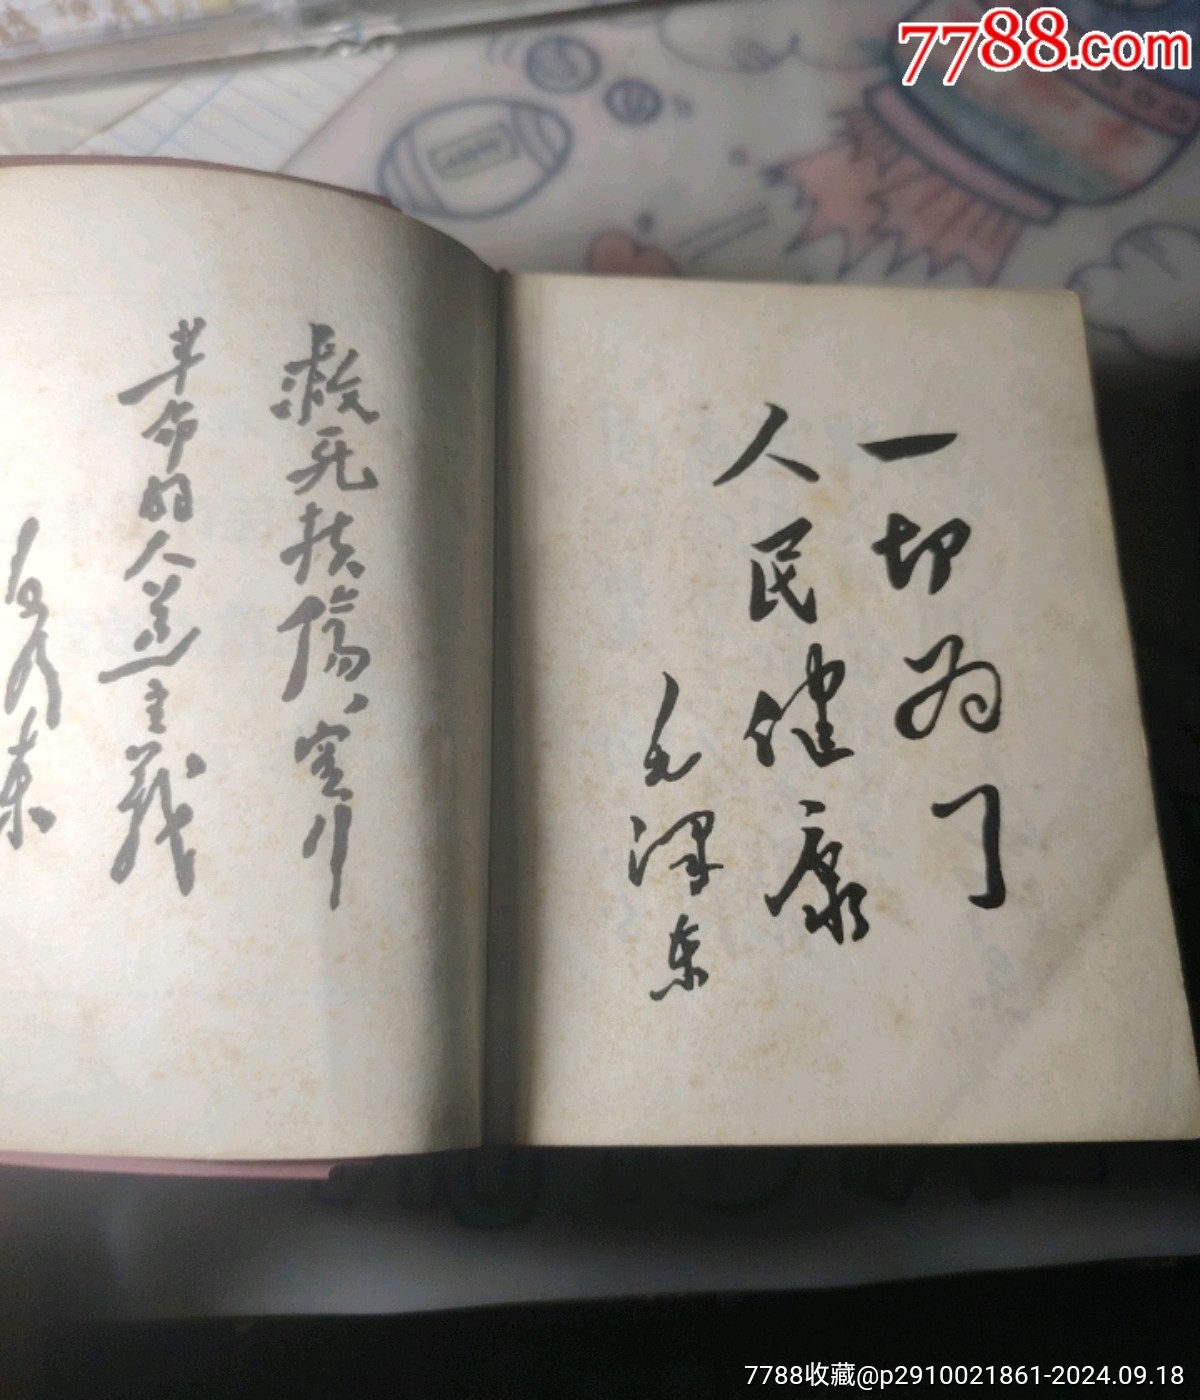 7788.com
一切为了
人民健康
毛泽东
救死扶傷、实行
革命的人道主義
毛泽东
7788收藏@p2910021861-2024.09.18